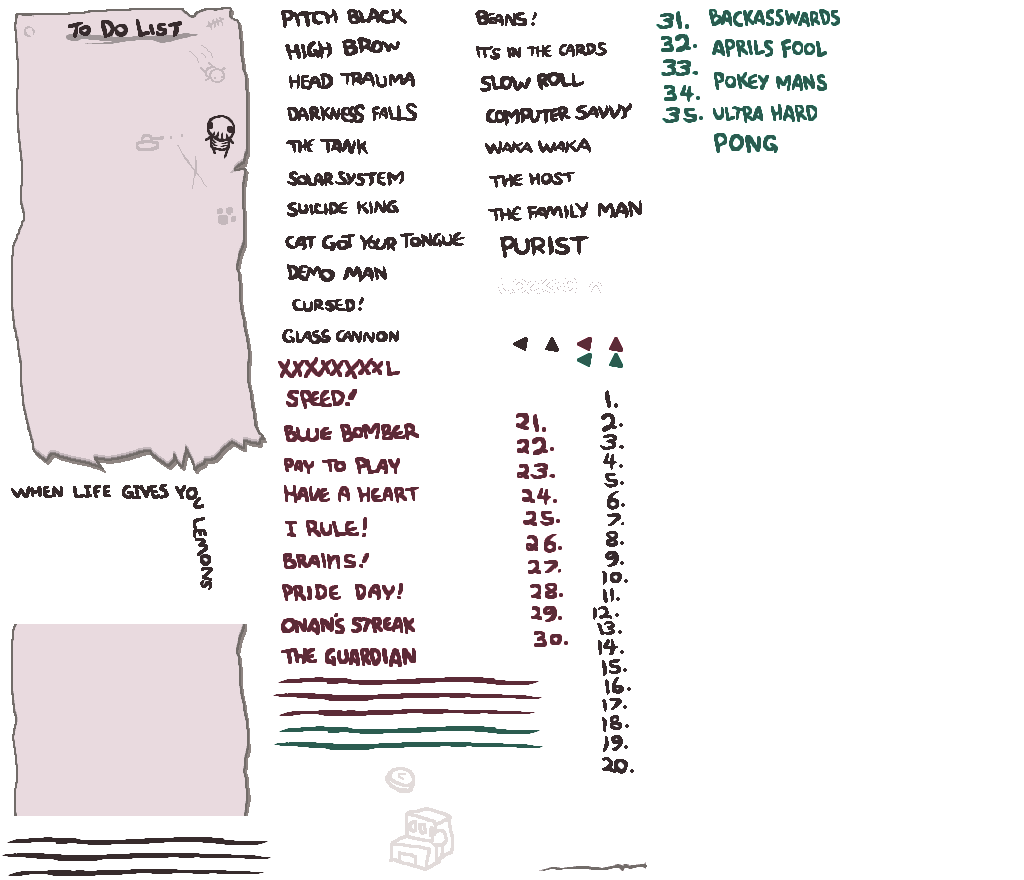 TO DO LIST
WHEN LIFE GIVES YOU LEMONS
PITCH BLACK
HIGH BROW
HEAD TRAUMA
DARKNESS FALLS
THE TANK
SOLAR SYSTEM
SUICIDE KING
CAT GOT YOUR TONGUE
DEMO MAN
CURSED!
GLASS CANNON
XXXXXXXXL
SPEED!
BLUE BOMBER
PAY TO PLAY
HAVE A HEART
I RULE!
BRAINS!
PRIDE DAY!
ONAN'S STREAK
THE GUARDIAN
BEANS!
IT'S IN THE CARDS
SLOW ROLL
COMPUTER SAVVY
WAKA WAKA
THE HOST
THE FAMILY MAN
PURIST
21.
22.
23.
24.
25.
26.
27.
28.
29.
30.
1.
2.
3.
4.
5.
6.
7.
8.
9.
10.
11.
12.
13.
14.
15.
16.
17.
18.
19.
20.
31.
32.
33.
34.
35.
BACKASSWARDS
APRILS FOOL
POKEY MANS
ULTRA HARD
PONG